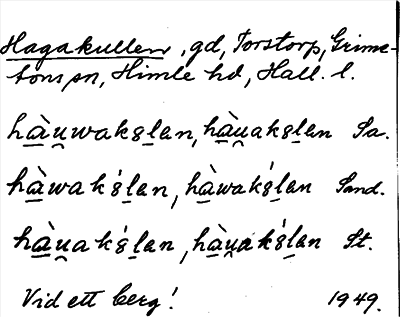 Hagakullen, gd, Torstorp, Grime-
tons sn, Himle hd, Hall. l.
hà̲u̯waksl̲en, hà̲u̯aksl̲en Sa.
hà̲wak´sl̲en, hà̲wak´sl̲en Sand.
hà̲u̯ak´sl̲en, hà̲u̯ak´sl̲en St.
Vid ett berg! 1949.